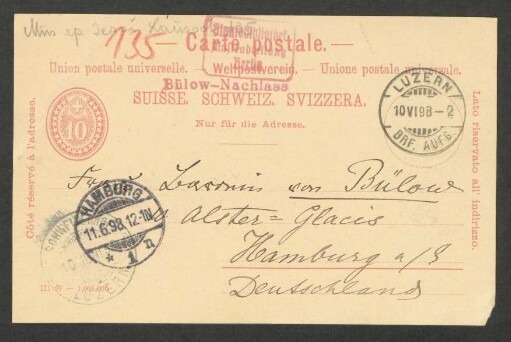 Mus ep
135-
Carte postale.
Staatsbibliothek
Musikabteilung
Berlin
Union postale universelle. — Weltpostverein. — Unione postale universale.
Bülow-Nachlass
SUISSE. SCHWEIZ. SVIZZERA.
Nur für die Adresse.
Côté réservé à l'adresse.
Lato riservato all' indirizzo.
10
LUZERN
10 VI 98 - 2
BRF. AUFG.
HAMBURG
11.6.98. 12-1N
* 1 n
LUZERN
Frau Baronin von Bülow
Alster=Glacis
Hamburg a/E
Deutschland